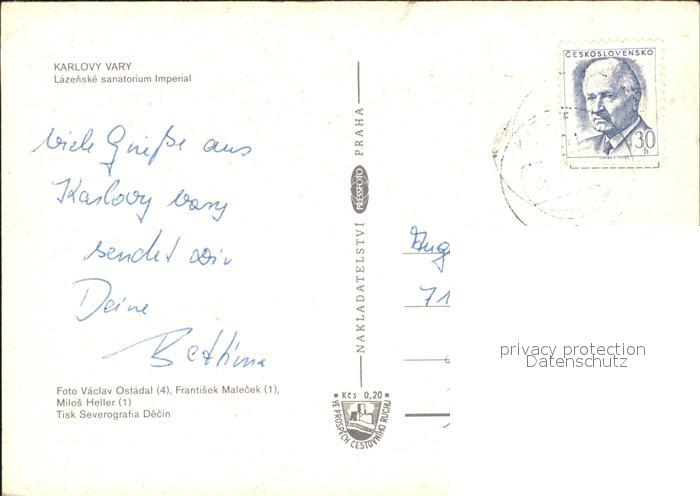 KARLOVY VARY
Lázeňské sanatorium Imperial
viele Grüße aus
Karlovy vary
sendet Dir
Deine
Bettina
Foto Václav Ostádal (4), František Maleček (1),
Miloš Heller (1)
Tisk Severografia Děčín
NAKLADATELSTVÍ PRESSFOTO PRAHA
Kčs 0,20
VE PROSPĚCH CESTOVNÍHO RUCHU
ČESKOSLOVENSKO
30
h
71
privacy protection
Datenschutz